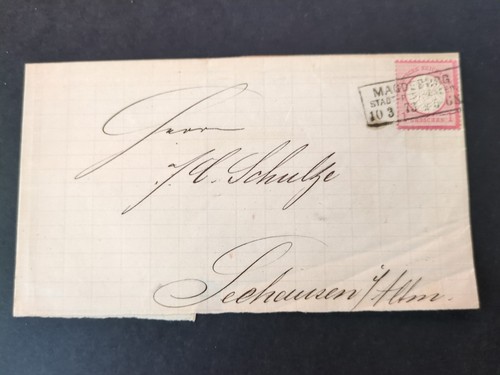 MAGDEBURG
STADTP
10 3 73
1
Herrn
Schulze
Seehausen i/Altm.